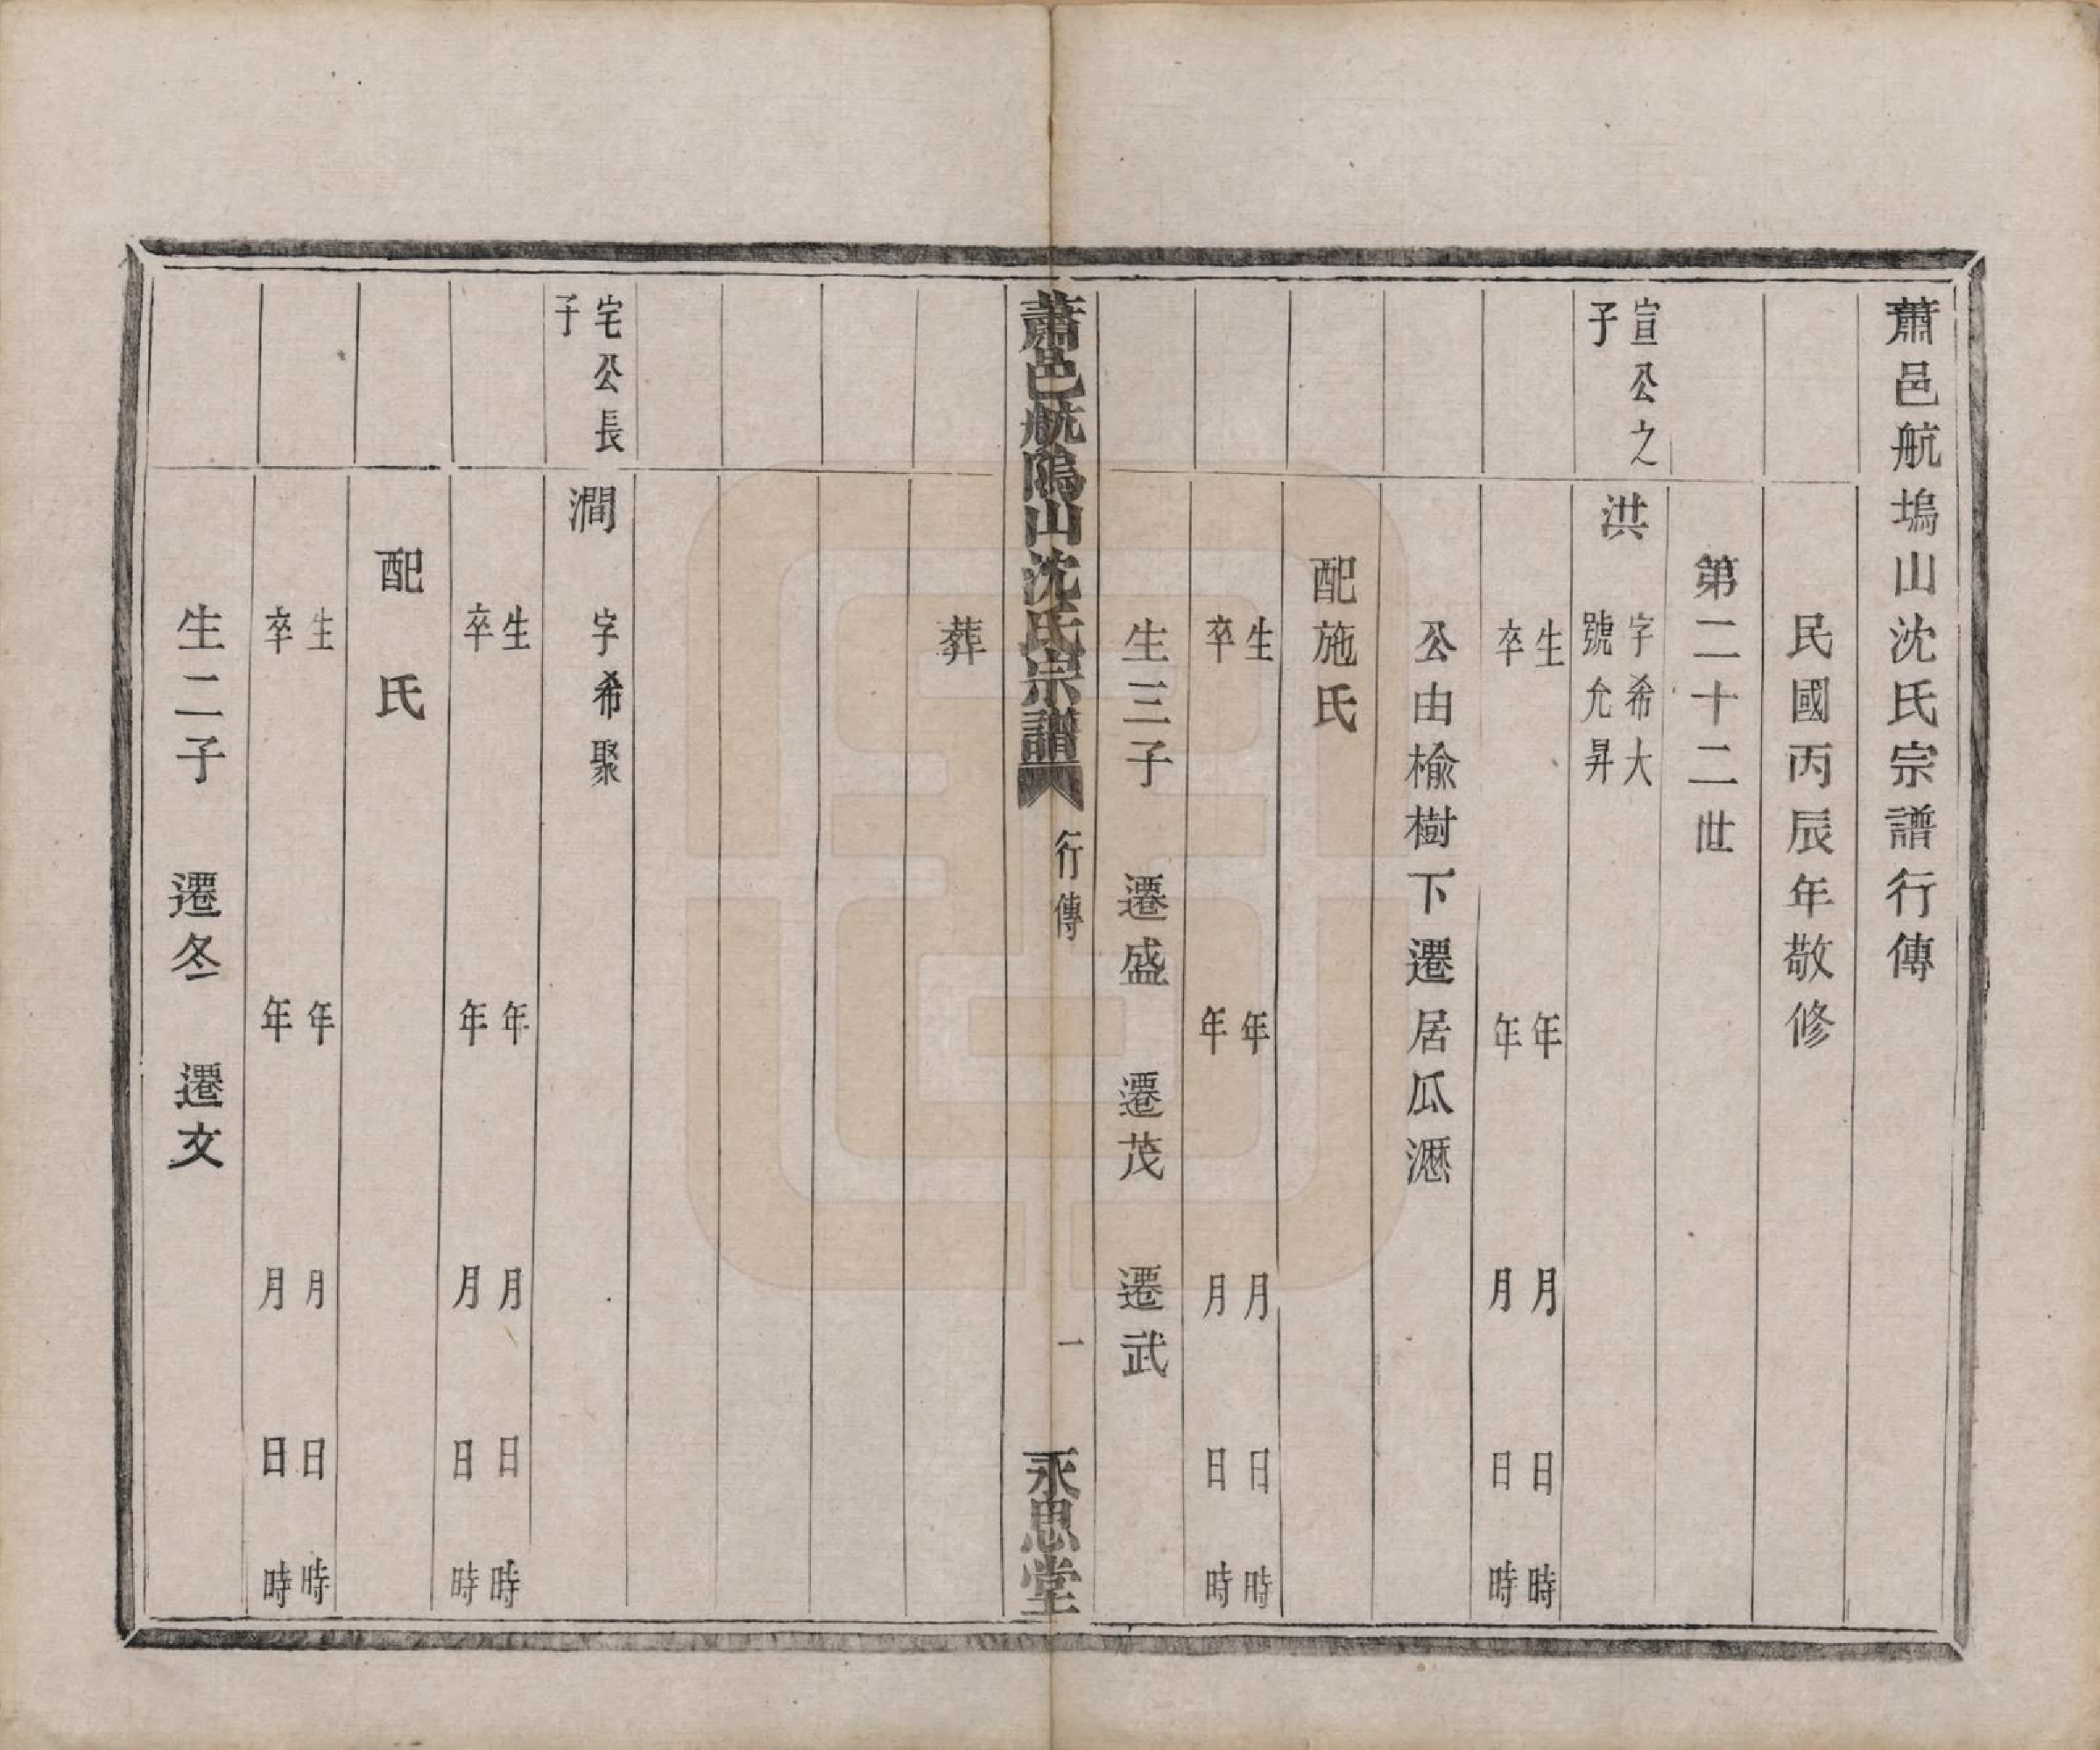 蕭邑航塢山沈氏宗譜行傳
民國丙辰年敬修
第二十二世
宣公之
子
洪
字希大
號允昇
生 年 月 日 時
卒 年 月 日 時
公由榆樹下遷居瓜瀝
配施氏
生 年 月 日 時
卒 年 月 日 時
生三子 遷盛 遷茂 遷武
蕭邑航塢山沈氏宗譜 行傳 一 永思堂
葬
宅公長
子
澗 字希聚
生 年 月 日 時
卒 年 月 日 時
配 氏
生 年 月 日 時
卒 年 月 日 時
生二子 遷冬 遷文